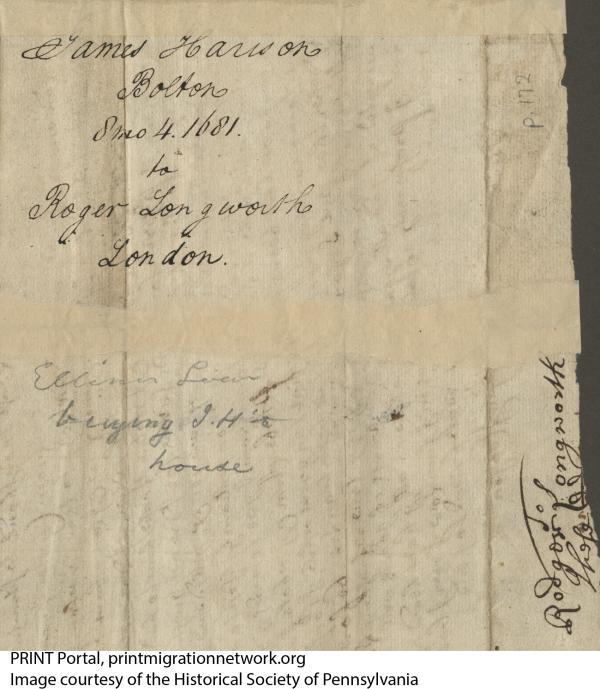 James Harison
Bolton
8mo 4. 1681.
to
Roger Longworth
London.
p. 172
Ellinor Low
buying J. H's
house
Rodger Longworth
PRINT Portal, printmigrationnetwork.org
Image courtesy of the Historical Society of Pennsylvania